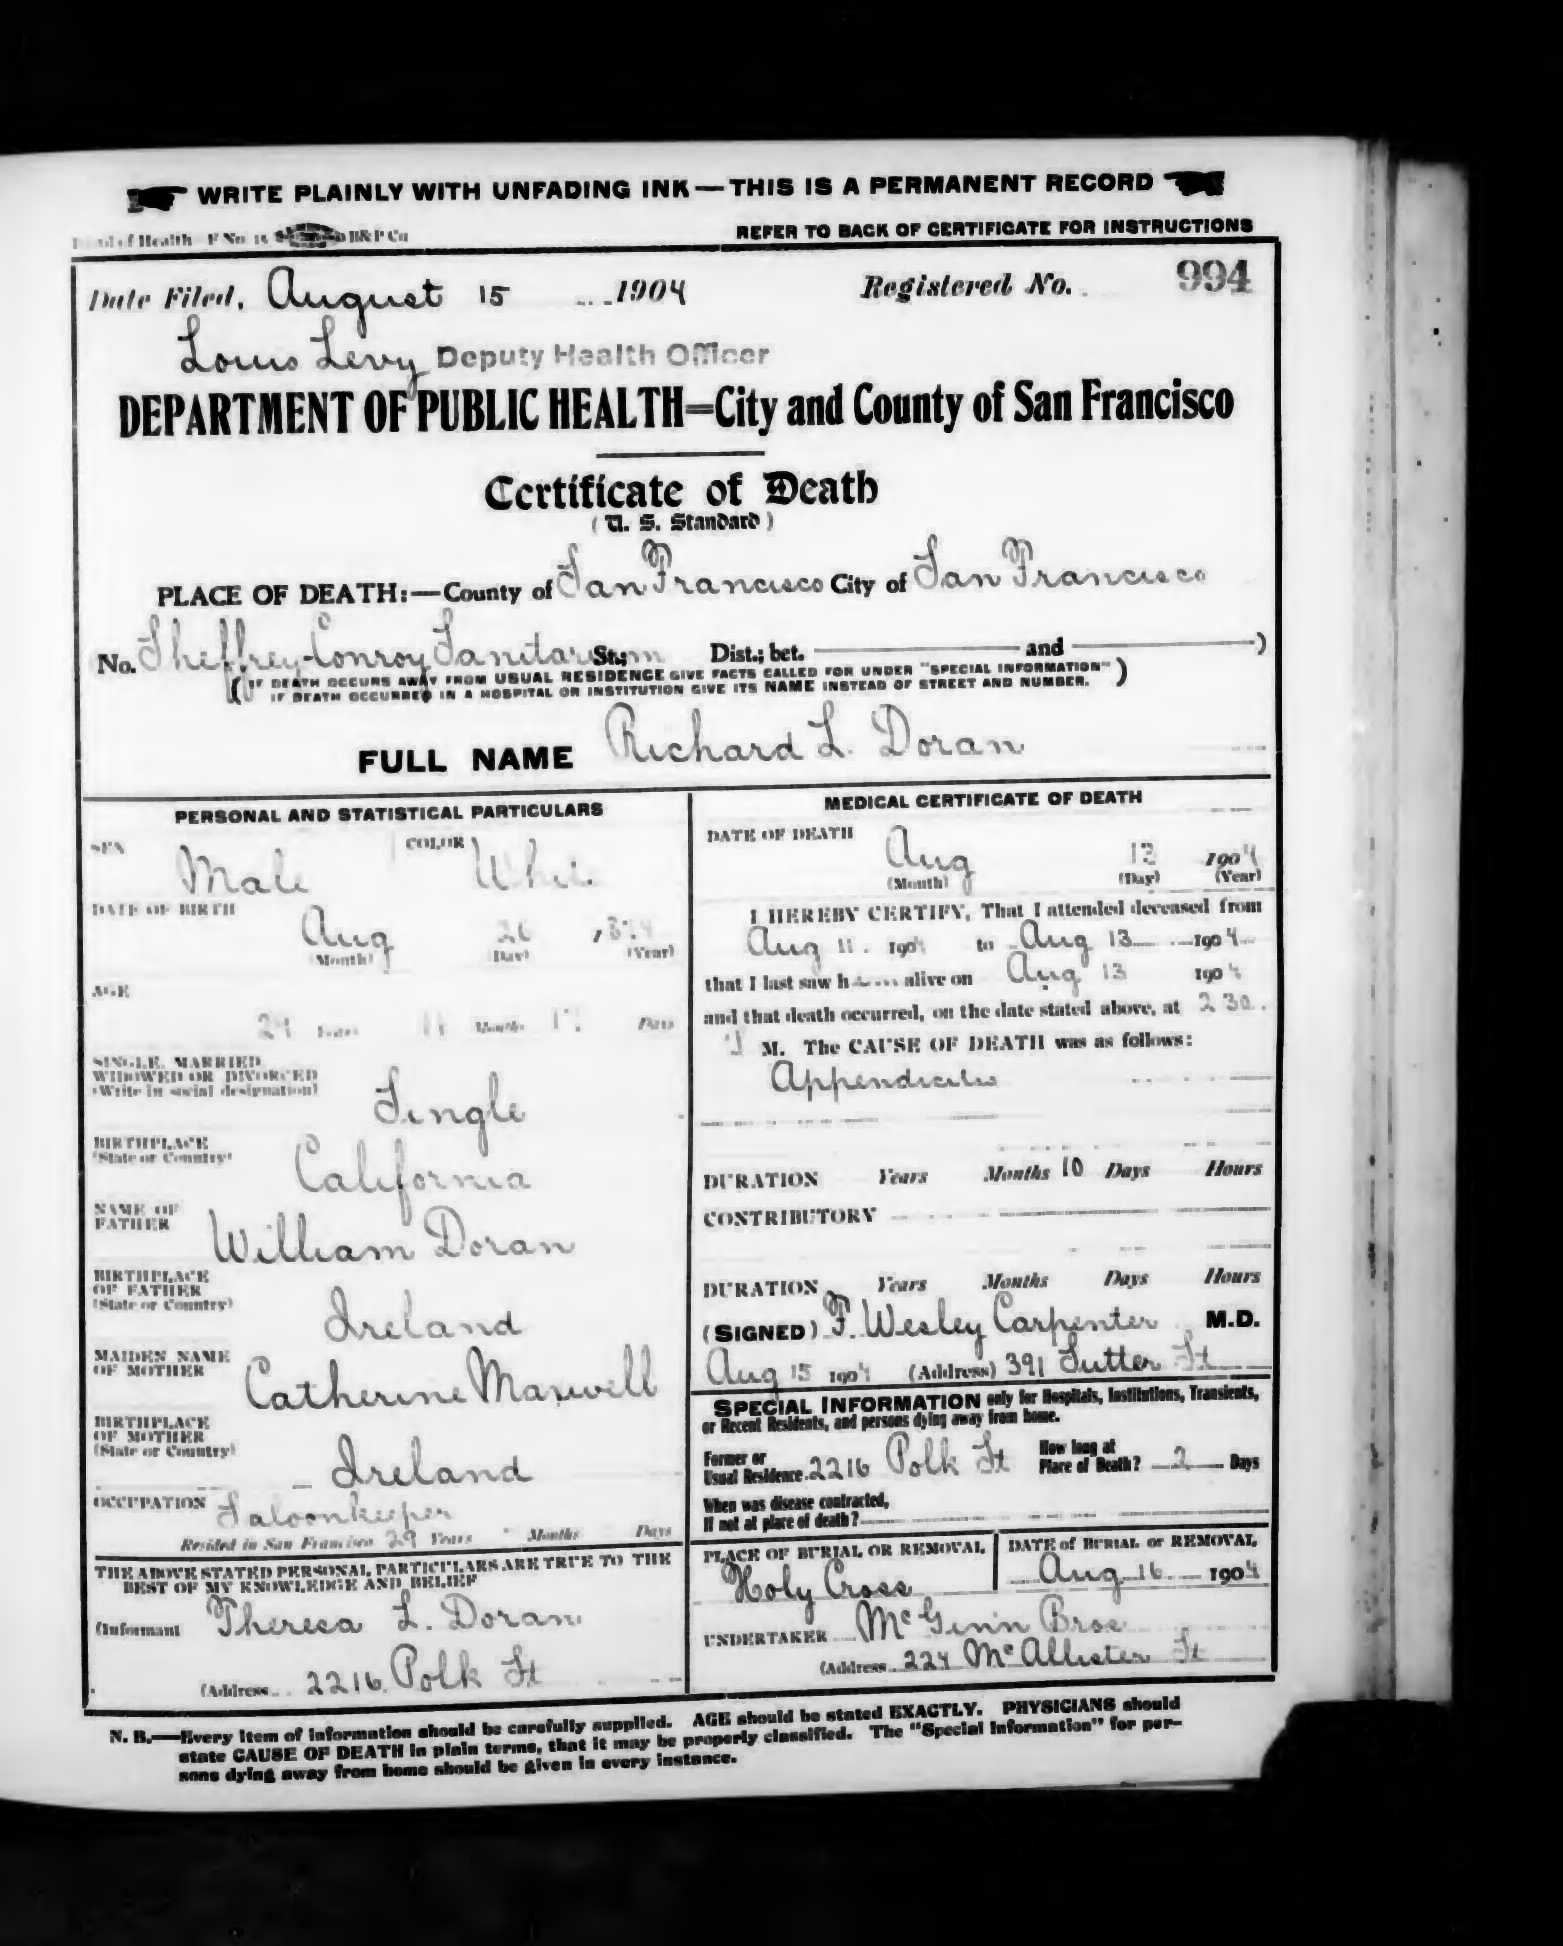 WRITE PLAINLY WITH UNFADING INK—THIS IS A PERMANENT RECORD
of Health F No. 15 B&P Co
REFER TO BACK OF CERTIFICATE FOR INSTRUCTIONS
Date Filed, August 15 1904 Registered No. 994
Louis Levy Deputy Health Officer
DEPARTMENT OF PUBLIC HEALTH=City and County of San Francisco
Certificate of Death
(U. S. Standard)
PLACE OF DEATH:—County of San Francisco City of San Francisco
No. Sheffrey-Conroy Sanitarium St.; Dist.; bet. and )
(IF DEATH OCCURS AWAY FROM USUAL RESIDENCE GIVE FACTS CALLED FOR UNDER "SPECIAL INFORMATION")
IF DEATH OCCURRED IN A HOSPITAL OR INSTITUTION GIVE ITS NAME INSTEAD OF STREET AND NUMBER.
FULL NAME Richard L. Doran
PERSONAL AND STATISTICAL PARTICULARS
SEX Male COLOR Whi
DATE OF BIRTH
Aug 26
(Month) (Day) (Year)
AGE
29 Years 11 Months 17 Days
SINGLE, MARRIED
WIDOWED OR DIVORCED
(Write in social designation)
Single
BIRTHPLACE
(State or Country)
California
NAME OF
FATHER
William Doran
BIRTHPLACE
OF FATHER
(State or Country)
Ireland
MAIDEN NAME
OF MOTHER
Catherine Maxwell
BIRTHPLACE
OF MOTHER
(State or Country)
Ireland
OCCUPATION Saloonkeeper
Resided in San Francisco 29 Years Months Days
THE ABOVE STATED PERSONAL PARTICULARS ARE TRUE TO THE
BEST OF MY KNOWLEDGE AND BELIEF
(Informant Theresa L. Doran
(Address 2216 Polk St
MEDICAL CERTIFICATE OF DEATH
DATE OF DEATH
Aug 13 1904
(Month) (Day) (Year)
I HEREBY CERTIFY, That I attended deceased from
Aug 11 1904 to Aug 13 1904
that I last saw him alive on Aug 13 1904
and that death occurred, on the date stated above, at 2 30
M. The CAUSE OF DEATH was as follows:
Appendicitis
DURATION Years Months 10 Days Hours
CONTRIBUTORY
DURATION Years Months Days Hours
(SIGNED) F. Wesley Carpenter M.D.
Aug 15 1904 (Address) 391 Sutter St
SPECIAL INFORMATION only for Hospitals, Institutions, Transients,
or Recent Residents, and persons dying away from home.
Former or
Usual Residence 2216 Polk St
How long at
Place of Death? 2 Days
When was disease contracted,
If not at place of death?
PLACE OF BURIAL OR REMOVAL
Holy Cross
DATE of BURIAL or REMOVAL
Aug 16 1904
UNDERTAKER McGinn Bros
(Address 224 McAllister St
N. B.—Every item of information should be carefully supplied. AGE should be stated EXACTLY. PHYSICIANS should
state CAUSE OF DEATH in plain terms, that it may be properly classified. The "Special Information" for per-
sons dying away from home should be given in every instance.